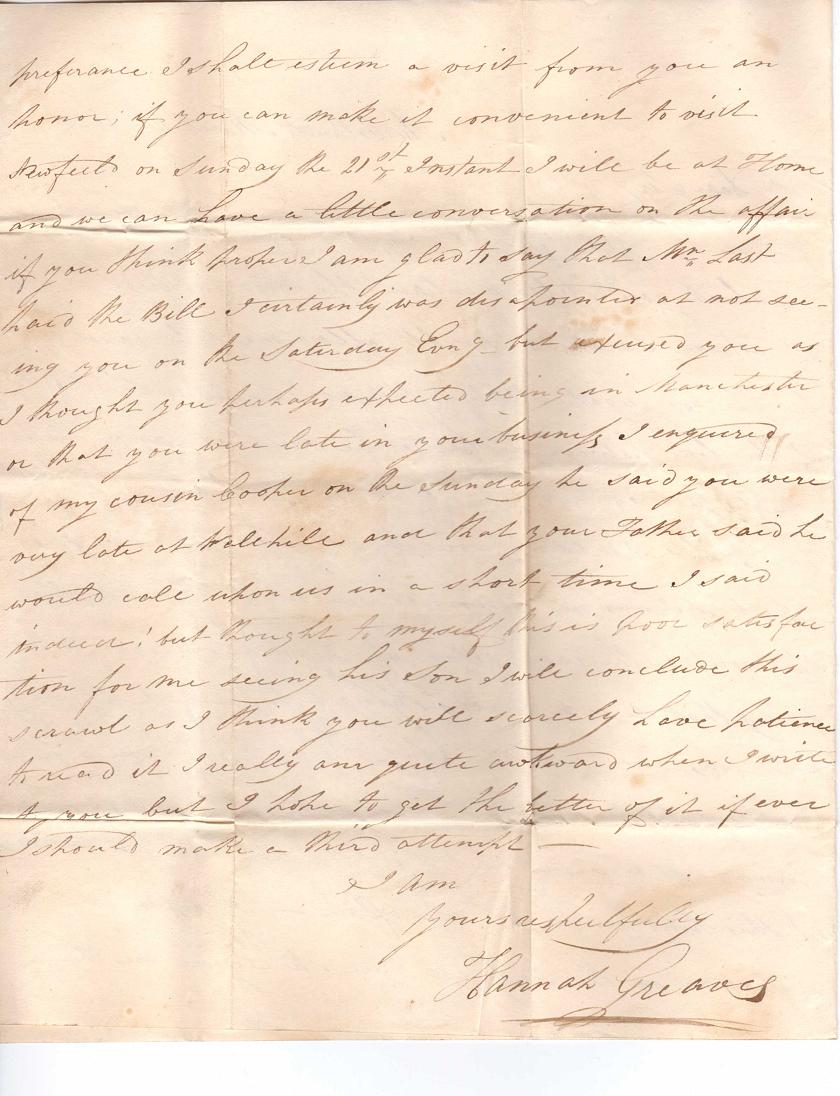 preferance I shall esteem a visit from you an
honor; if you can make it convenient to visit
on Sunday the 21st Instant I will be at Home
and we can have a little conversation on the affair
if you think proper I am glad to say that Mr Last
paid the Bill I certainly was disapointed at not see-
ing you on the Saturday Evng - but excused you as
I thought you perhaps expected being in Manchester
or that you were late in your business I enquired
of my cousin Cooper on the Sunday he said you were
very late at and that your Father said he
would call upon us in a short time I said
indeed! but thought to myself this is poor satisfac
tion for me seeing his Son I will conclude this
scrawl as I think you will scarcely have patience
to read it I really am quite awkward when I write
to you but I hope to get the better of it if ever
I should make a third attempt —
I am
Yours respectfully
Hannah Greaves